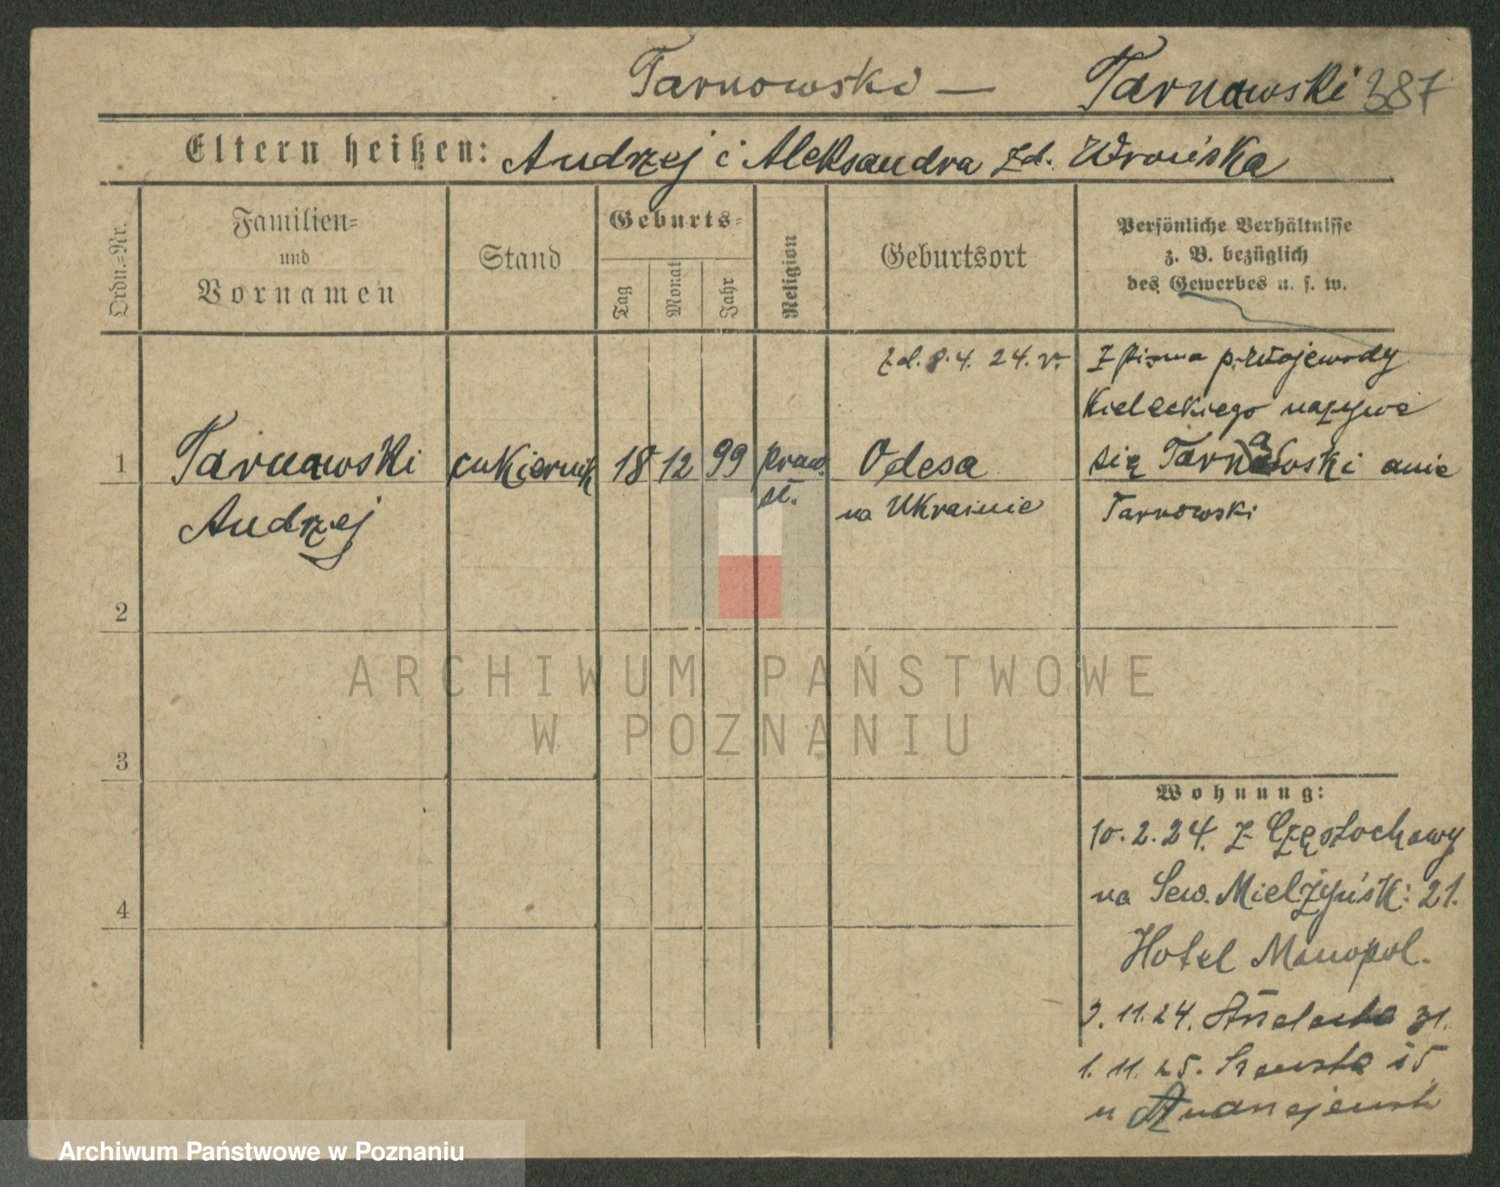 Tarnowski — Tarnawski 387
Eltern heißen: Andrzej i Aleksandra zd. Wrońska
Ordn.-Nr.
Familien-
und
Vornamen
Stand
Geburts-
Tag
Monat
Jahr
Religion
Geburtsort
Persönliche Verhältnisse
z. B. bezüglich
des Gewerbes u. s. w.
zd. 8. 4. 24. r.
Z pisma p. Wojewody
Kieleckiego nazywa
1 Tarnawski cukiernik 18 12 99 praw. Odesa
się Tarnawski a nie
Andrzej sł. na Ukrainie
Tarnowski
2
3
4
Wohnung:
10. 2. 24. z Częstochowy
na Sew. Mielżyńsk: 21.
Hotel Monopol.
3. 11. 24. Strzelecka 31.
1. 11. 25. 15
u
ARCHIWUM PAŃSTWOWE
W POZNANIU
Archiwum Państwowe w Poznaniu